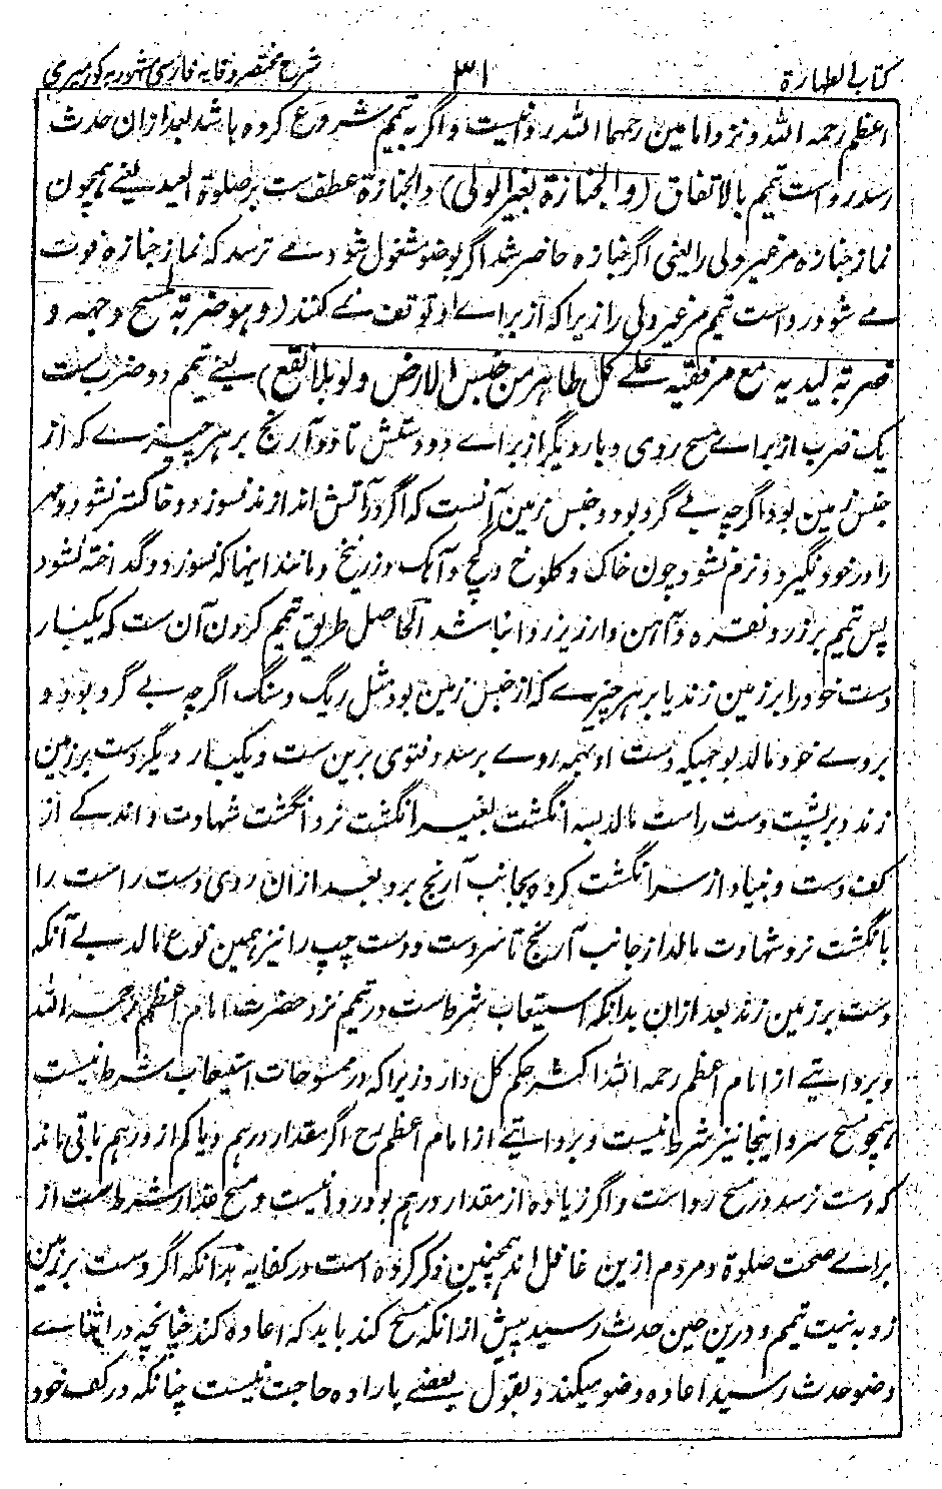 کتاب الطهارة ۳۱ شرح مختصر وقایه فارسی مشهور به کورمیری
اعظم رحمه الله و نزد امامین رحمهما الله روا نیست و اگر به تیمم شروع کرده باشد بعد ازان حدث
رسد رواست تیمم بالاتفاق (والجنازة بغیر الولی) والجنازة عطف ست بر صلوة العید یعنے همچون
نماز جنازه مر غیر ولی را یعنی اگر جنازه حاضر شد اگر بوضو مشغول شود مے ترسد که نماز جنازه فوت
مے شود رواست تیمم مر غیر ولی را زیرا که از براے او توقف نمے کنند (و هو ضربة لمسح وجهه و
ضربة لیدیه مع مرفقیه علے کل طاهر من جنس الارض ولو بلا نقع) یعنے تیمم دو ضرب ست
یک ضرب از براے مسح روی و بار دیگر از براے دو دستش تا دو آرنج بر هر چیزے که از
جنس زمین بود اگر چه بے گرد بود و جنس زمین آنست که اگر در آتش اندازند نسوزد و خاکستر نشود و مهر
را در خود نگیرد و نرم نشود چون خاک و کلوخ و گچ و آهک و زرنیخ و مانند اینها که نسوزد و گداخته نشود
پس تیمم بر زر و نقره و آهن و ارزیز روا نباشد الحاصل طریق تیمم کردن آن ست که یکبار
دست خود را بر زمین زند یا بر هر چیزے که از جنس زمین بود مثل ریگ و سنگ اگر چه بے گرد بود و
بروے خود مالد بوجهیکه دست او بهمه روے برسد و فتوی برین ست و یکبار دیگر دست بر زمین
زند و بر پشت دست راست مالد بسه انگشت بغیر انگشت نر و انگشت شهادت و اندکے از
کف دست و بنیاد از سر انگشت کرده بجانب آرنج برد و بعد ازان روی دست راست را
بانگشت نر و شهادت مالد از جانب آرنج تا سر دست و دست چپ را نیز همین نوع مالد بے آنکه
دست بر زمین زند بعد ازان بدانکه استیعاب شرط است در تیمم نزد حضرت امام اعظم رحمه الله
و بروایتے از امام اعظم رحمه الله اکثر حکم کل دارد زیرا که در ممسوحات استیعاب شرط نیست
همچو مسح سر و اینجا نیز شرط نیست و بروایتے از امام اعظم رح اگر مقدار درهم و یا کم از درهم باقی ماند
که دست نرسد در مسح رواست و اگر زیاده از مقدار درهم بود روا نیست و مسح عذار شرط است از
براے صحت صلوة و مردم ازین غافل اند همچنین ذکر کرده است در کفایه بدانکه اگر دست بر زمین
زد به نیت تیمم و درین حین حدث رسید پیش از انکه مسح کند باید که اعاده کند چنانچه در اثناے
وضو حدث رسید اعاده وضو میکند و بقول بعضے باراده حاجت نیست چنانکه در کف خود